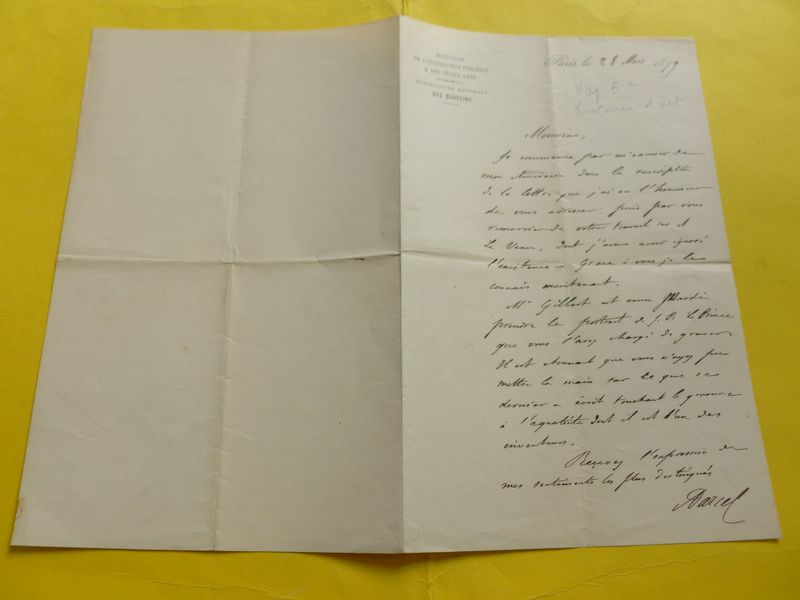 MINISTÈRE
DE L'INSTRUCTION PUBLIQUE
& DES BEAUX-ARTS
MANUFACTURE NATIONALE
DES GOBELINS
Paris le 28 Mars 1879
histoire d'art
Monsieur,
Je commence par m'excuser de
mon dans la suscription
de la lettre que j'ai eu l'honneur
de vous adresser: puis par vous
remercier de votre travail sur A.
Le Veau, dont j'avoue avoir ignoré
l'existence. Grace à vous je le
connais maintenant.
Mr Gillbert est venu Mardi
prendre le portrait de J. B. Le Prince
que vous l'avez chargé de graver.
Il est étonnant que vous n'ayez pu
mettre la main sur ce que ce
dernier a écrit touchant la gravure
à l'aquatinte dont il est l'un des
inventeurs.
Recevez l'expression de
mes sentiments les plus distingués
Darcel